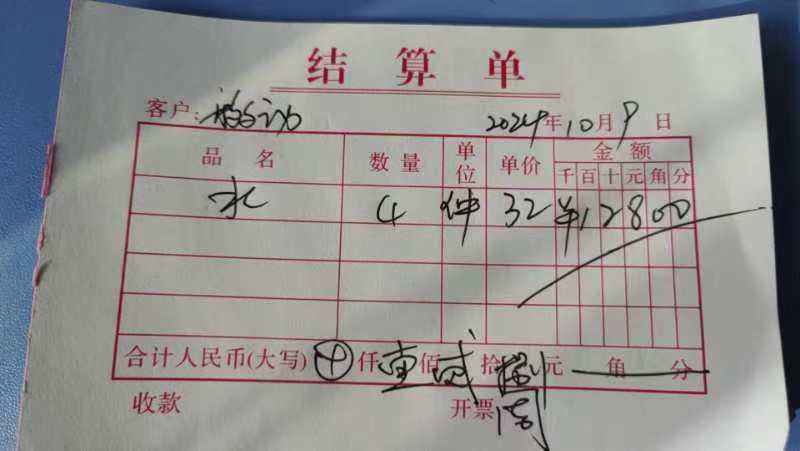 结算单
客户: 2024年10月9日
品名 数量 单位 单价 金额
千 百 十 元 角 分
水 4 件 32 ¥12800
合计人民币(大写) 仟 壹 佰 贰 拾 捌 元 角 分
收款 开票